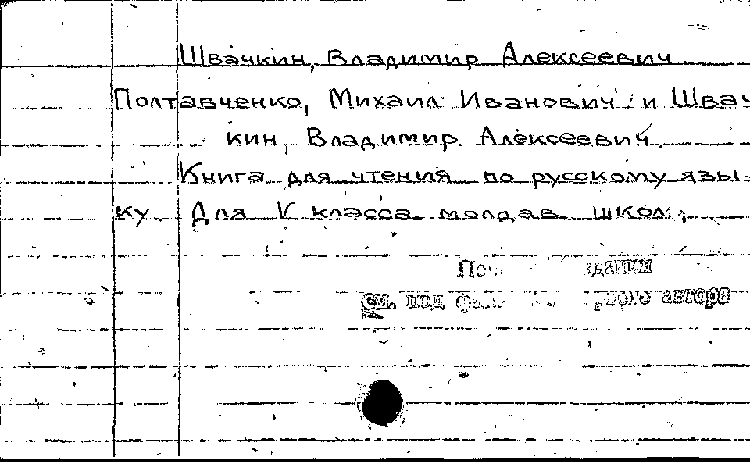 Швачкин, Владимир Алексеевич
Полтавченко, Михаил Иванович и Швач-
кин, Владимир Алексеевич.
Книга для чтения по русскому язы-
ку. Для V класса молдав. школ.
см. под автора